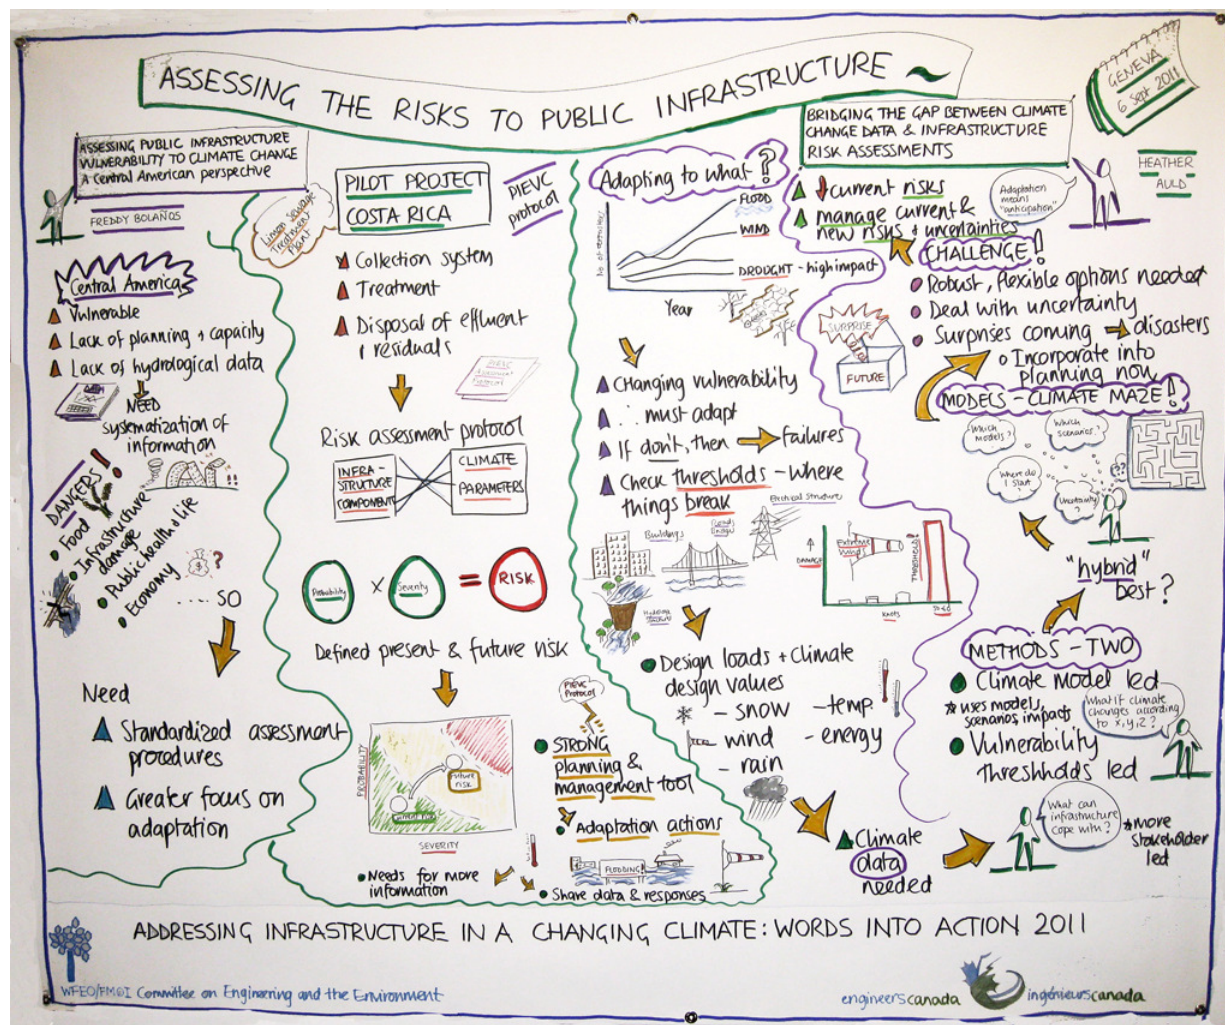 ASSESSING THE RISKS TO PUBLIC INFRASTRUCTURE
GENEVA
6 Sept 2011
ASSESSING PUBLIC INFRASTRUCTURE
VULNERABILITY TO CLIMATE CHANGE
A Central American perspective
FREDDY BOLAÑOS
Central America
Vulnerable
Lack of planning + capacity
Lack of hydrological data
NEED
systematization of
information
DANGERS!
Food
Infrastructure
damage
Public health + life
Economy
?
..... SO
Need
Standardized assessment
procedures
Greater focus on
adaptation
Limon Sewage
Treatment
Plant
PILOT PROJECT
COSTA RICA
PIEVC
protocol
Collection system
Treatment
Disposal of effluent
+ residuals
PIEVC
Risk assessment protocol
INFRA-
STRUCTURE
COMPONENTS
CLIMATE
PARAMETERS
Probability × Severity = RISK
Defined present & future risk
PROBABILITY
Future
risk
Current risk
SEVERITY
Needs for more
information
PIEVC
Protocol
STRONG
planning &
management tool
Adaptation actions
FLOODING!
Share data & responses
Adapting to what?
FLOOD
WIND
DROUGHT - high impact
Year
CHanging vulnerability
∴ must adapt
If don't, then → failures
Check thresholds - where
things break
Buildings
Roads
Bridges
Electrical Structure
DAMAGE
Extreme
winds
THRESHOLD!
KNOTS
50-60
Design loads + Climate
design values
- snow
- wind
- rain
- temp.
- energy
Climate
data
needed
BRIDGING THE GAP BETWEEN CLIMATE
CHANGE DATA & INFRASTRUCTURE
RISK ASSESSMENTS
HEATHER
AULD
Adaptation
means
"anticipation"
current risks
manage current &
new risks + uncertainties
CHALLENGE!
Robust, flexible options needed
Deal with uncertainty
Surprises coming → disasters
Incorporate into
planning now
SURPRISE
FUTURE
MODELS - CLIMATE MAZE!
Which
models?
Which
scenarios?
Where do
I start?
Uncertainty?
??
"hybrid"
best?
METHODS - TWO
Climate model led
* uses models,
scenarios, impacts
What if climate
changes according
to x, y, z?
Vulnerability
threshholds led
What can
infrastructure
cope with?
* more
stakeholder
led
ADDRESSING INFRASTRUCTURE IN A CHANGING CLIMATE: WORDS INTO ACTION 2011
WFEO/FMOI Committee on Engineering and the Environment
engineerscanada
ingénieurscanada